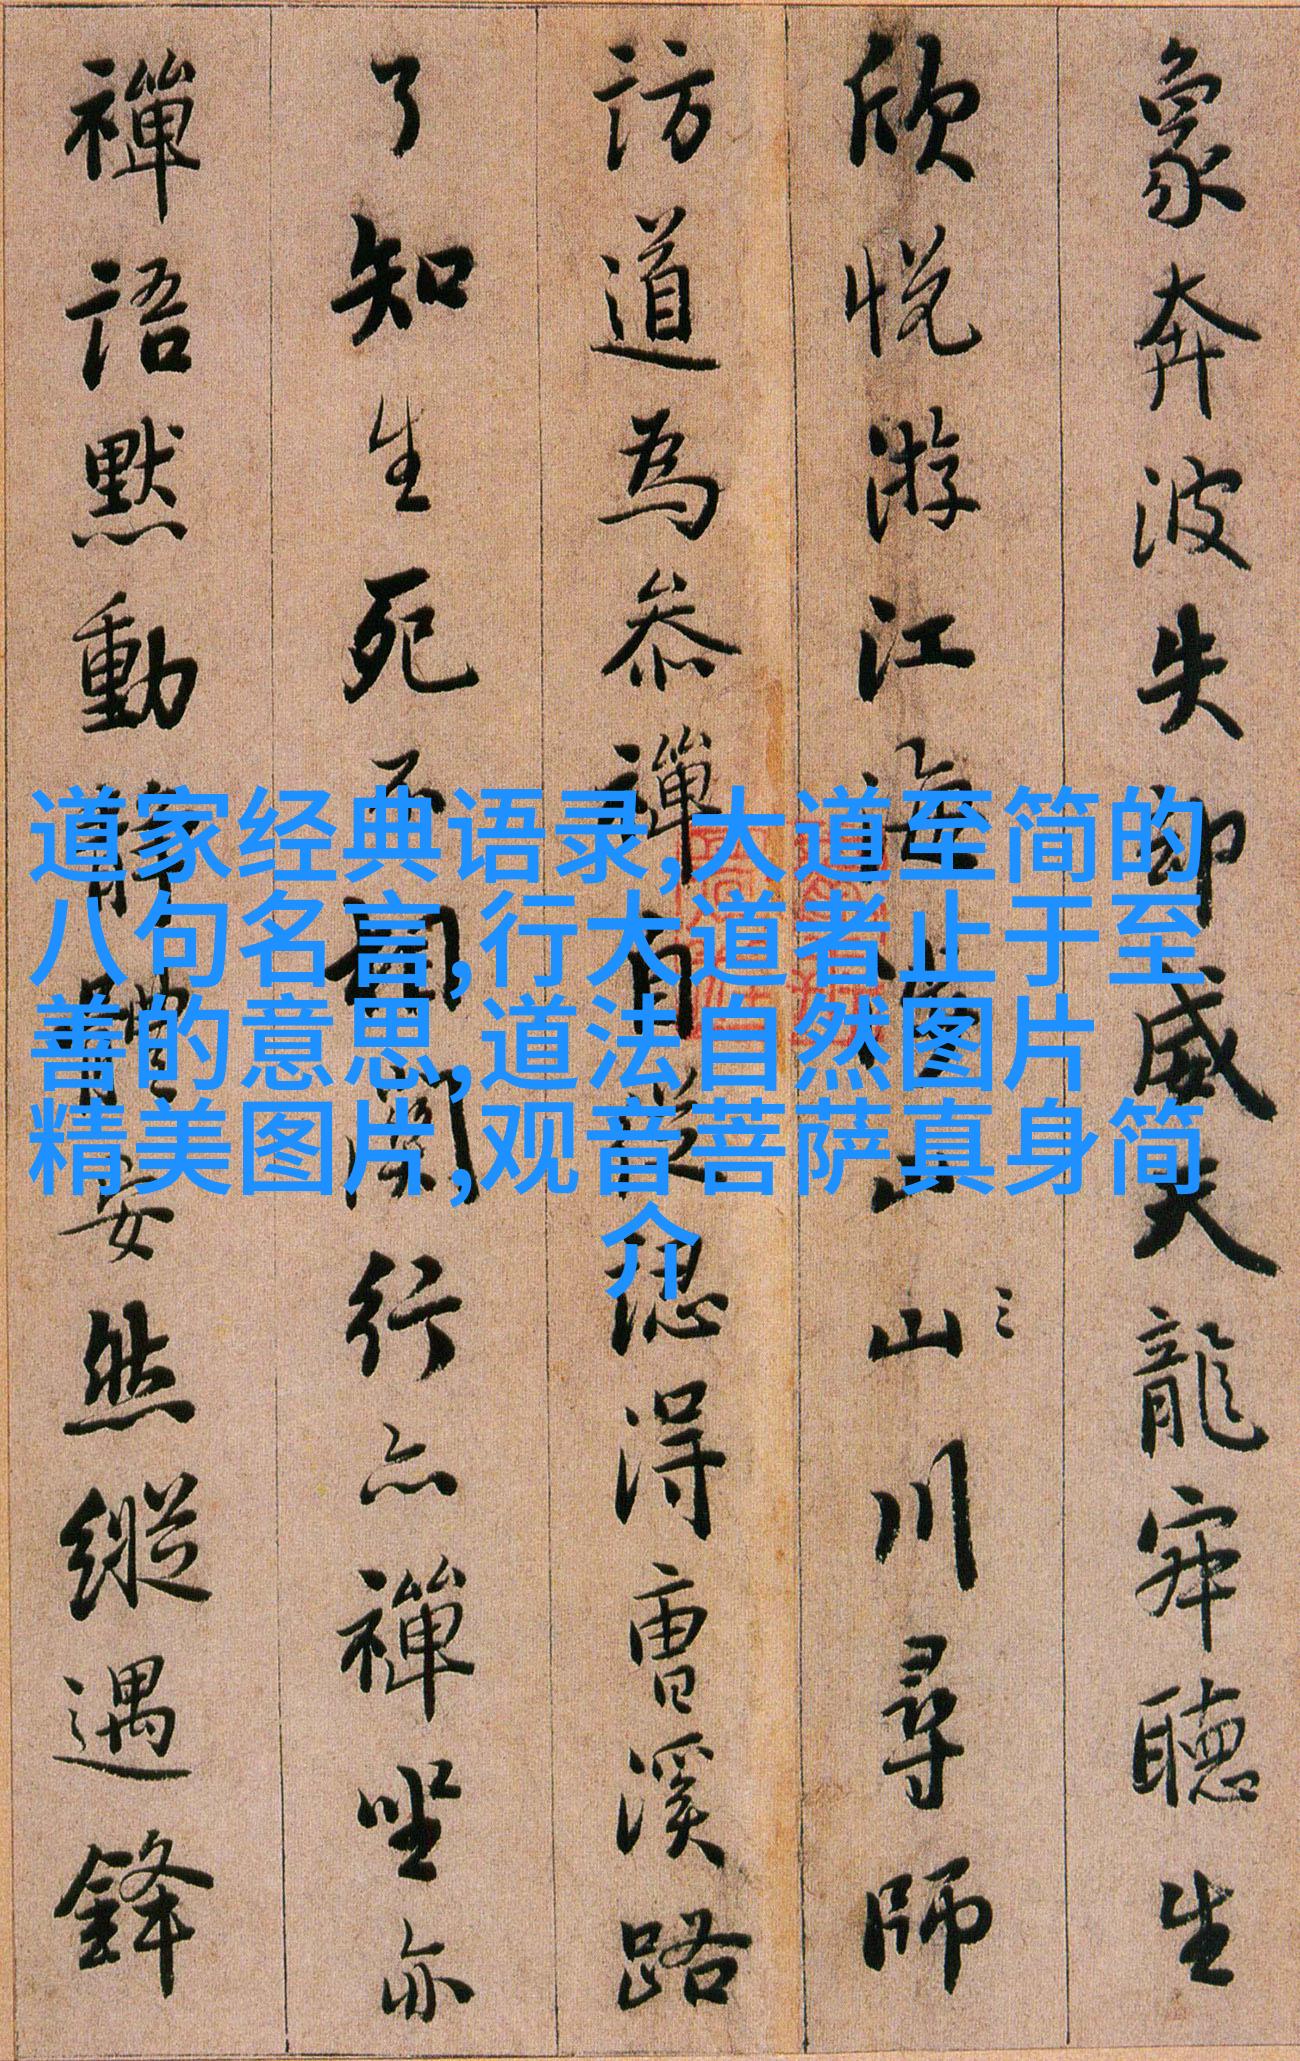 象奔波失却威天龍寂聽生
欣悅游江海涉山山川尋師
訪道為參禪自從認得曹溪路
了知生死不關行亦禪坐亦
禪語默動靜體安然縱遇鋒
道家经典语录,大道至简的
八句名言,行大道者止于至
善的意思,道法自然图片
精美图片,观音菩萨真身简
介